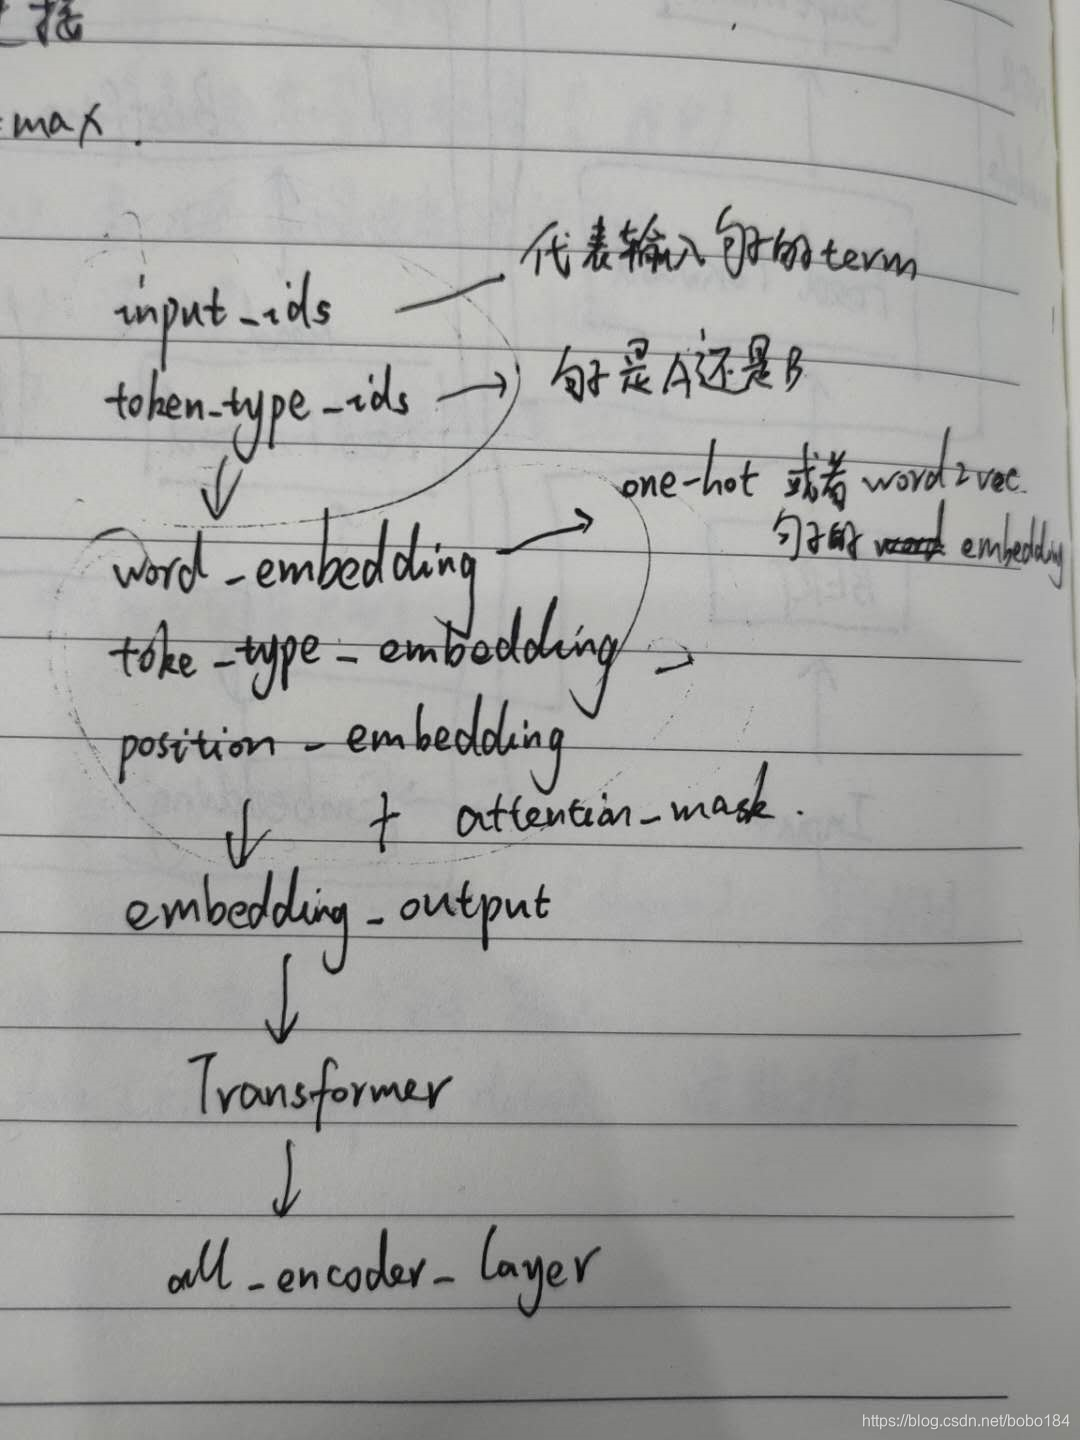 接
max.
input_ids
代表输入句子的term
token_type_ids
句子是A还是B
word_embedding
one-hot 或者 word2vec.
句子的 embedding
toke_type_embedding
position_embedding
+ attention_mask.
embedding_output
Transformer
all_encoder_layer
https://blog.csdn.net/bobo184